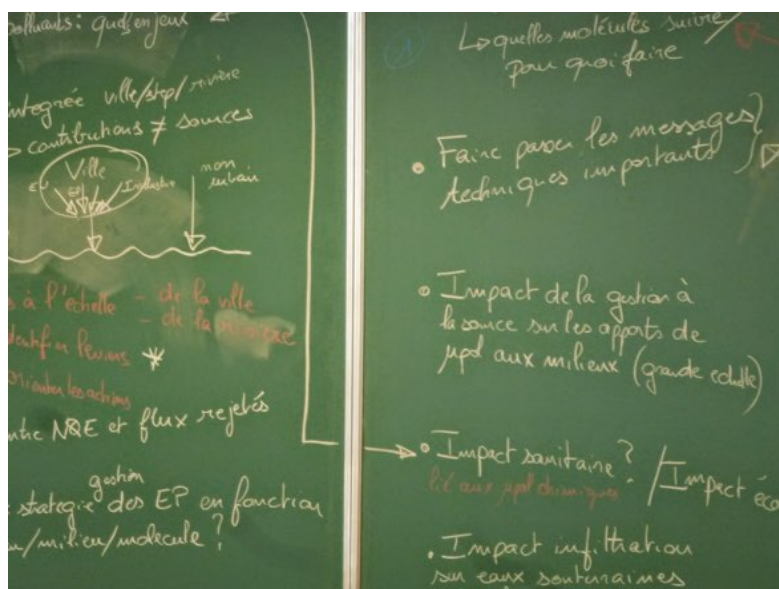 polluants: quels enjeux
intégrée ville/step/rivière
contributions ≠ sources
Ville
Industrie
non
urbain
à l'échelle - de la ville
- de la rivière
identifier leviers *
orienter les actions
entre NQE et flux rejetés
gestion
stratégie des EP en fonction
/milieu/molécule?
↳ quelles molécules suivre/
pour quoi faire
• Faire passer les messages
techniques importants
• Impact de la gestion à
la source sur les apports de
µpol aux milieux (grande echelle)
• Impact sanitaire? / Impact éco
lié aux µpol chimiques
• Impact infiltration
sur eaux souterraines